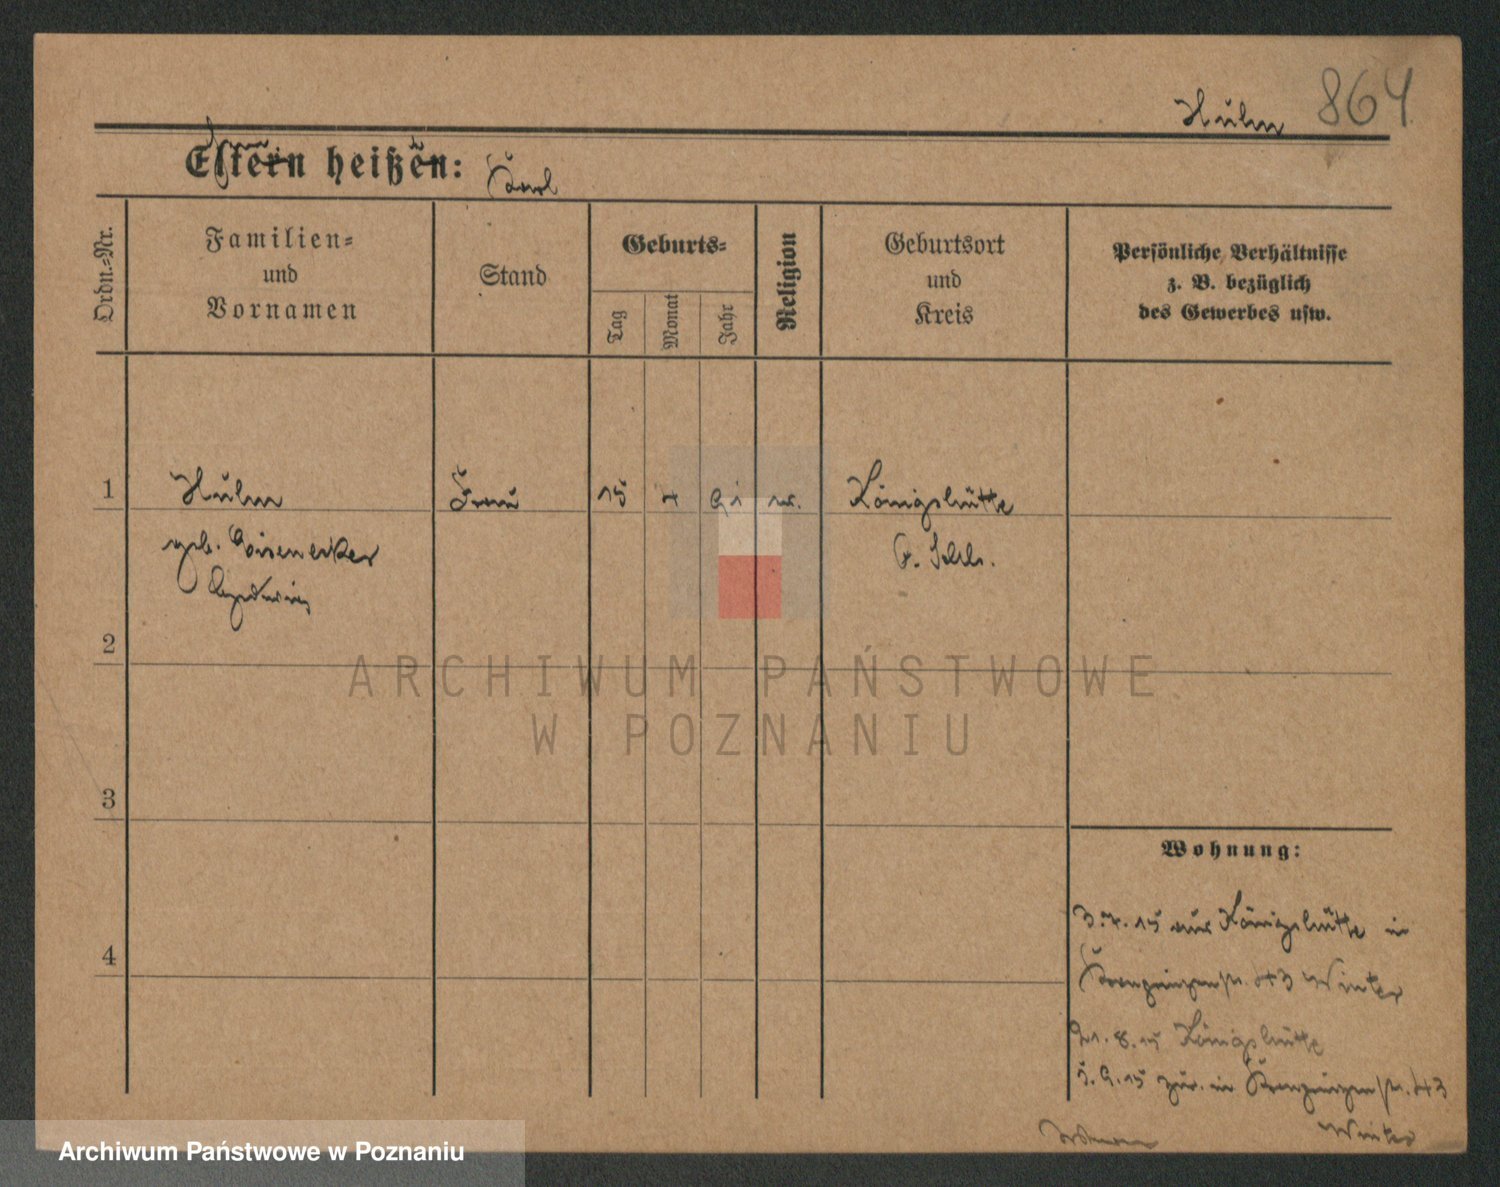 Hulm 864
Eltern heißen:
Karl
Ordn.-Nr.
Familien-
und
Vornamen
Stand
Geburts-
Tag
Monat
Jahr
Religion
Geburtsort
und
Kreis
Persönliche Verhältnisse
z. B. bezüglich
des Gewerbes usw.
1
Hulm
Frau
15
91
Königshütte
geb.
O. Schls.
2
3
4
Wohnung:
3.7.15 aus Königshütte in
Kronprinzenstr. 43 Winter
21.8.15 Königshütte
zur. in Kronprinzenstr. 43
Winter
ARCHIWUM PAŃSTWOWE
W POZNANIU
Archiwum Państwowe w Poznaniu